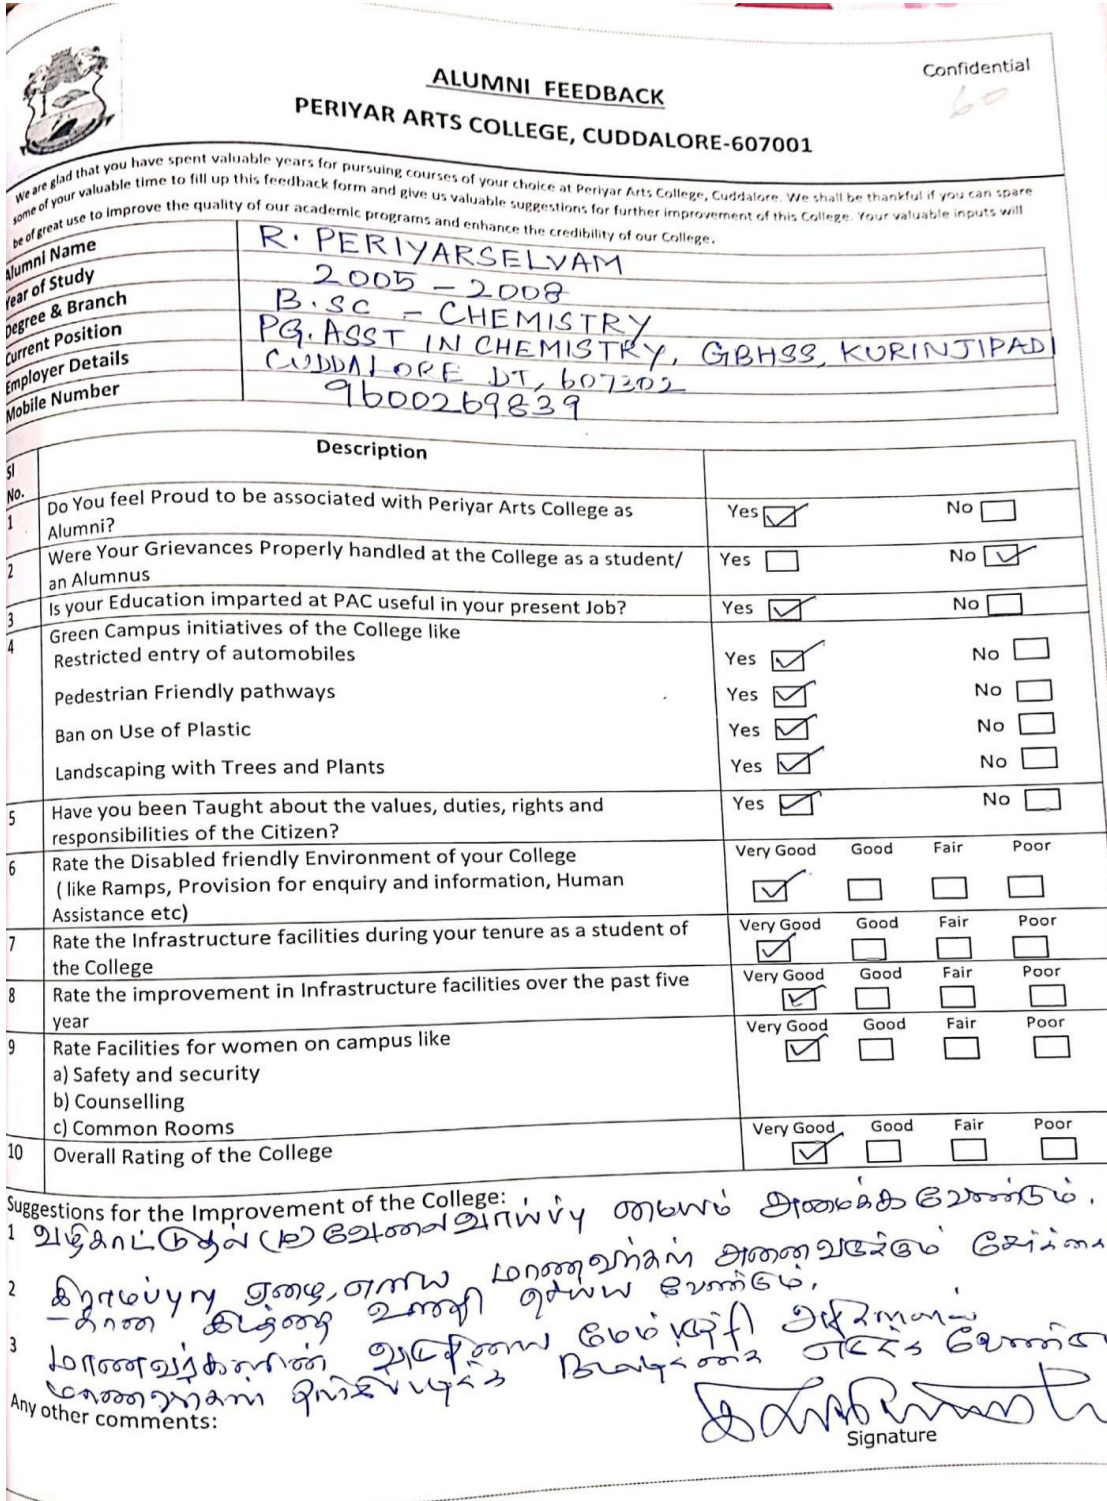 Confidential
60
ALUMNI FEEDBACK
PERIYAR ARTS COLLEGE, CUDDALORE-607001
We are glad that you have spent valuable years for pursuing courses of your choice at Periyar Arts College, Cuddalore. We shall be thankful if you can spare
some of your valuable time to fill up this feedback form and give us valuable suggestions for further improvement of this College. Your valuable inputs will
be of great use to improve the quality of our academic programs and enhance the credibility of our College.
Alumni Name R. PERIYARSELVAM
Year of Study 2005 - 2008
Degree & Branch B.SC - CHEMISTRY
Current Position PG. ASST IN CHEMISTRY, GBHSS, KURINJIPADI
Employer Details CUDDALORE DT, 607302
Mobile Number 9600269839
Sl No. Description
1 Do You feel Proud to be associated with Periyar Arts College as Yes No
Alumni?
2 Were Your Grievances Properly handled at the College as a student/ Yes No
an Alumnus
3 Is your Education imparted at PAC useful in your present Job? Yes No
4 Green Campus initiatives of the College like
Restricted entry of automobiles Yes No
Pedestrian Friendly pathways Yes No
Ban on Use of Plastic Yes No
Landscaping with Trees and Plants Yes No
5 Have you been Taught about the values, duties, rights and Yes No
responsibilities of the Citizen?
6 Rate the Disabled friendly Environment of your College Very Good Good Fair Poor
(like Ramps, Provision for enquiry and information, Human
Assistance etc)
7 Rate the Infrastructure facilities during your tenure as a student of Very Good Good Fair Poor
the College
8 Rate the improvement in Infrastructure facilities over the past five Very Good Good Fair Poor
year
9 Rate Facilities for women on campus like Very Good Good Fair Poor
a) Safety and security
b) Counselling
c) Common Rooms
10 Overall Rating of the College Very Good Good Fair Poor
Suggestions for the Improvement of the College:
1 வழிகாட்டுதல் (ம) வேலைவாய்ப்பு மையம் அமைக்க வேண்டும்.
2 கிராமப்புற ஏழை, எளிய மாணவர்கள் அனைவருக்கும் சேர்க்கை
-கான இடத்தை உறுதி செய்ய வேண்டும்.
3 மாணவர்களின் மேம்படுத்தி
மாணவர்கள் நடவடிக்கை எடுக்க வேண்டும்
Any other comments:
Signature